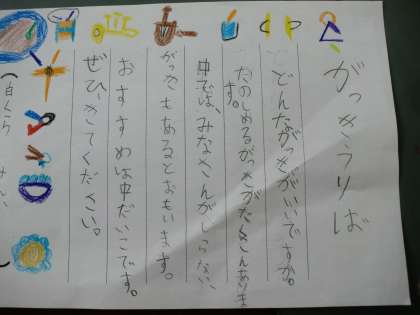 がっきうりば
どんながっきがいいですか。
たのしめるがっきがたくさんあります。
中では、みなさんがしらない
がっきもあるとおもいます。
おすすめは中だいこです。
ぜひ、きてください。